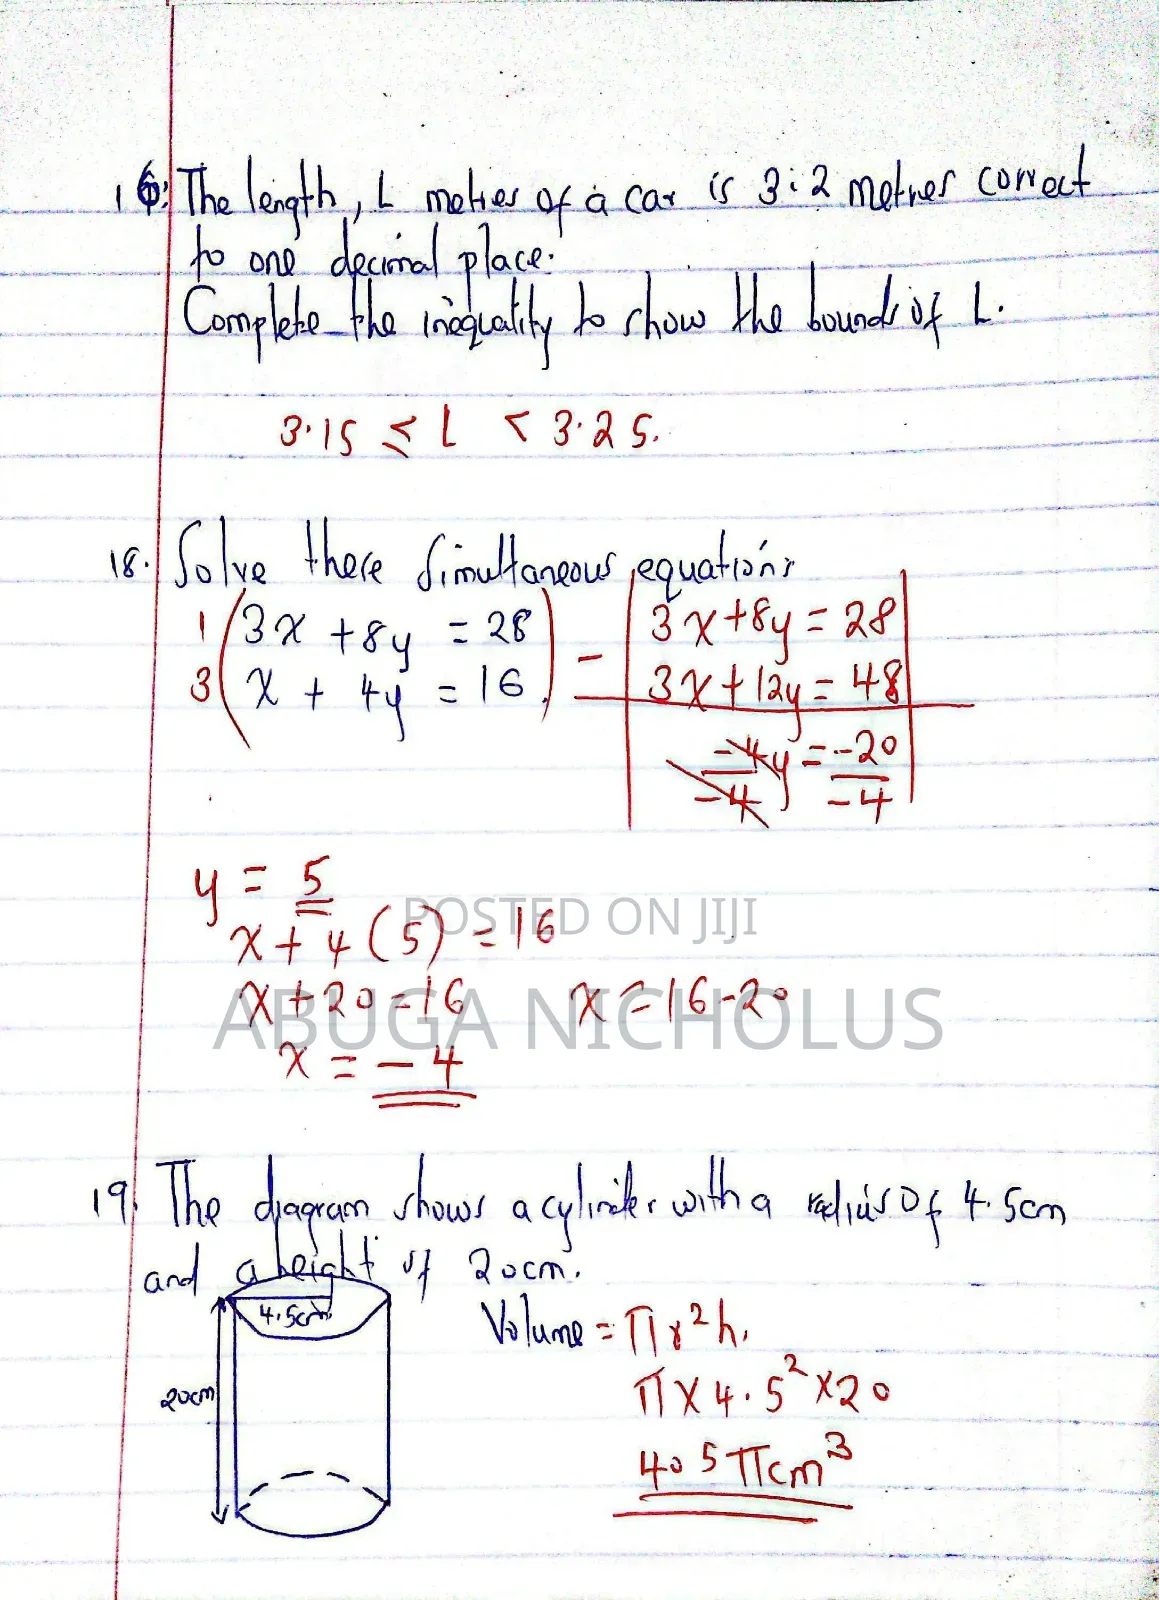 16. The length, L metres of a car is 3.2 metres correct
to one decimal place.
Complete the inequality to show the bounds of L.
3.15 ≤ L < 3.25.
18. Solve these simultaneous equations
1 (3x + 8y = 28) - | 3x + 8y = 28 |
3 (x + 4y = 16.) | 3x + 12y = 48 |
-4y = -20
-4 -4
y = 5
POSTED ON JIJI
x + 4(5) = 16
x + 20 = 16 x = 16 - 20
ABUGA NICHOLUS
x = -4
19. The diagram shows a cylinder with a radius of 4.5cm
and a height of 20cm.
4.5cm
Volume = πr²h.
20cm
π × 4.5² × 20
405πcm³